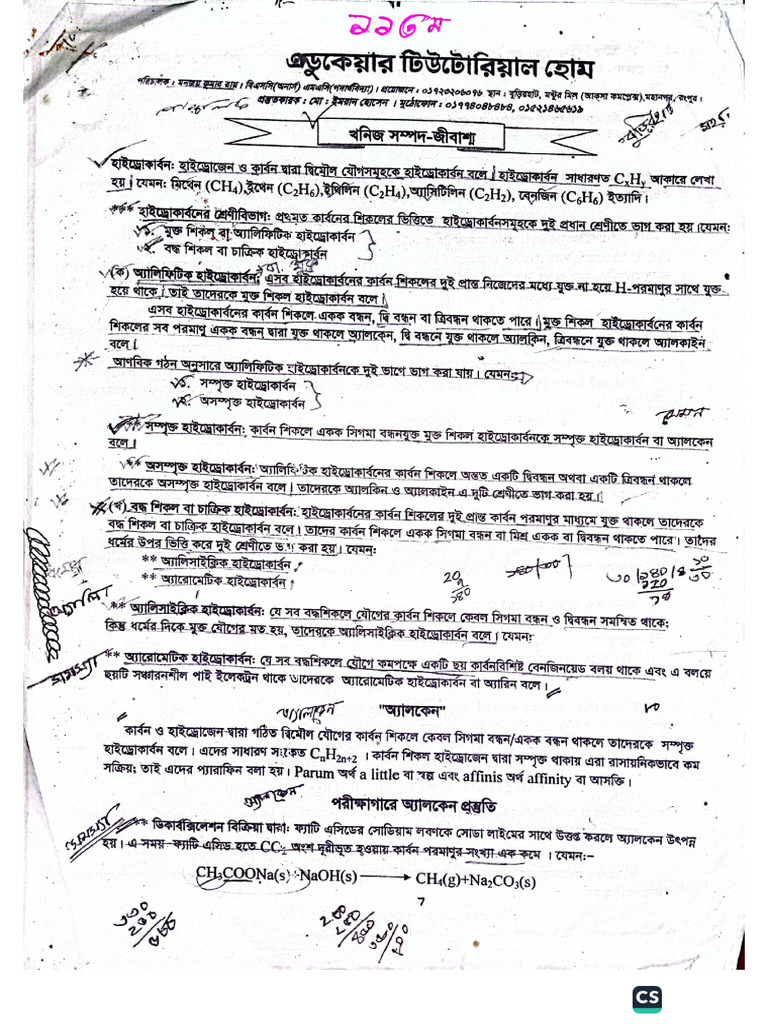 ১১তম
এডুকেয়ার টিউটোরিয়াল হোম
পরিচালক : মনজয় কুমার রায়। বিএসসি(অনার্স) এমএসসি(পদার্থবিদ্যা)। প্রয়োজনে : ০১৭২০২০৬০৭৬ স্থান : বুড়িরহাট, মন্টুর মিল (আকসা কমপ্লেক্স),মহানপর, রংপুর।
প্রস্তুতকারক : মো : ইমরান হোসেন । মুঠোফোন : ০১৭৭৪০৪৮৪৮৪, ০১৫২১৪৫৫৬১৯
খনিজ সম্পদ-জীবাশ্ম
হাইড্রোকার্বন: হাইড্রোজেন ও কার্বন দ্বারা দ্বিমৌল যৌগসমূহকে হাইড্রোকার্বন বলে। হাইড্রোকার্বন সাধারণত CxHy আকারে লেখা
হয়। যেমন: মিথেন (CH4),ইথেন (C2H6),ইথিলিন (C2H4),অ্যাসিটিলিন (C2H2), বেনজিন (C6H6) ইত্যাদি।
*** হাইড্রোকার্বনের শ্রেণীবিভাগ: প্রথমত কার্বনের শিকলের ভিত্তিতে হাইড্রোকার্বনসমূহকে দুই প্রধান শ্রেণীতে ভাগ করা হয়।যেমন:
১. মুক্ত শিকল বা অ্যালিফিটিক হাইড্রোকার্বন
২. বদ্ধ শিকল বা চাক্রিক হাইড্রোকার্বন
(ক) অ্যালিফিটিক হাইড্রোকার্বন: এসব হাইড্রোকার্বনের কার্বন শিকলের দুই প্রান্ত নিজেদের মধ্যে যুক্ত না হয়ে H-পরমাণুর সাথে যুক্ত
হয়ে থাকে। তাই তাদেরকে মুক্ত শিকল হাইড্রোকার্বন বলে।
এসব হাইড্রোকার্বনের কার্বন শিকলে একক বন্ধন, দ্বি বন্ধন বা ত্রিবন্ধন থাকতে পারে। মুক্ত শিকল হাইড্রোকার্বনের কার্বন
শিকলের সব পরমাণু একক বন্ধন দ্বারা যুক্ত থাকলে অ্যালকেন, দ্বি বন্ধনে যুক্ত থাকলে অ্যালকিন, ত্রিবন্ধনে যুক্ত থাকলে অ্যালকাইন
বলে।
আণবিক গঠন অনুসারে অ্যালিফিটিক হাইড্রোকার্বনকে দুই ভাগে ভাগ করা যায়। যেমন:
১. সম্পৃক্ত হাইড্রোকার্বন
২. অসম্পৃক্ত হাইড্রোকার্বন
** সম্পৃক্ত হাইড্রোকার্বন: কার্বন শিকলে একক সিগমা বন্ধনযুক্ত মুক্ত শিকল হাইড্রোকার্বনকে সম্পৃক্ত হাইড্রোকার্বন বা অ্যালকেন
বলে।
** অসম্পৃক্ত হাইড্রোকার্বন: অ্যালিফিটিক হাইড্রোকার্বনের কার্বন শিকলে অন্তত একটি দ্বিবন্ধন অথবা একটি ত্রিবন্ধন থাকলে
তাদেরকে অসম্পৃক্ত হাইড্রোকার্বন বলে। তাদেরকে অ্যালকিন ও অ্যালকাইন এ দুটি শ্রেণীতে ভাগ করা হয়।
(খ) বদ্ধ শিকল বা চাক্রিক হাইড্রোকার্বন: হাইড্রোকার্বনের কার্বন শিকলের দুই প্রান্ত কার্বন পরমাণুর মাধ্যমে যুক্ত থাকলে তাদেরকে
বদ্ধ শিকল বা চাক্রিক হাইড্রোকার্বন বলে। তাদের কার্বন শিকলে একক সিগমা বন্ধন বা মিশ্র একক বা দ্বিবন্ধন থাকতে পারে। তাদের
ধর্মের উপর ভিত্তি করে দুই শ্রেণীতে ভাগ করা হয়। যেমন:
** অ্যালিসাইক্লিক হাইড্রোকার্বন
** অ্যারোমেটিক হাইড্রোকার্বন
** অ্যালিসাইক্লিক হাইড্রোকার্বন: যে সব বদ্ধশিকলে যৌগের কার্বন শিকলে কেবল সিগমা বন্ধন ও দ্বিবন্ধন সমন্বিত থাকে;
কিন্তু ধর্মের দিকে মুক্ত যৌগের মত হয়, তাদেরকে অ্যালিসাইক্লিক হাইড্রোকার্বন বলে। যেমন:
** অ্যারোমেটিক হাইড্রোকার্বন: যে সব বদ্ধশিকলে যৌগে কমপক্ষে একটি ছয় কার্বনবিশিষ্ট বেনজিনয়েড বলয় থাকে এবং এ বলয়ে
ছয়টি সঞ্চারনশীল পাই ইলেকট্রন থাকে তাদেরকে অ্যারোমেটিক হাইড্রোকার্বন বা অ্যারিন বলে।
অ্যালকেন "অ্যালকেন"
কার্বন ও হাইড্রোজেন দ্বারা গঠিত দ্বিমৌল যৌগের কার্বন শিকলে কেবল সিগমা বন্ধন/একক বন্ধন থাকলে তাদেরকে সম্পৃক্ত
হাইড্রোকার্বন বলে। এদের সাধারণ সংকেত CnH2n+2 । কার্বন শিকল হাইড্রোজেন দ্বারা সম্পৃক্ত থাকায় এরা রাসায়নিকভাবে কম
সক্রিয়; তাই এদের প্যারাফিন বলা হয়। Parum অর্থ a little বা স্বল্প এবং affinis অর্থ affinity বা আসক্তি।
পরীক্ষাগারে অ্যালকেন প্রস্তুতি
** ডিকার্বক্সিলেশন বিক্রিয়া দ্বারা: ফ্যাটি এসিডের সোডিয়াম লবণকে সোডা লাইমের সাথে উত্তপ্ত করলে অ্যালকেন উৎপন্ন
হয়। এ সময় ফ্যাটি এসিড হতে CO2 অংশ দূরীভূত হওয়ায় কার্বন পরমাণুর সংখ্যা এক কমে । যেমন:-
CH3COONa(s)+NaOH(s) → CH4(g)+Na2CO3(s)
CS